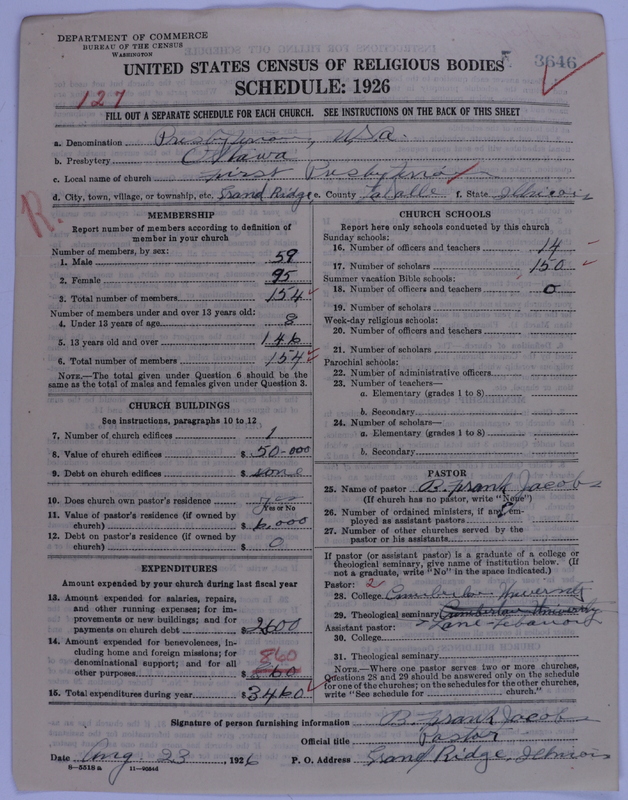 DEPARTMENT OF COMMERCE
BUREAU OF THE CENSUS
WASHINGTON
3646
UNITED STATES CENSUS OF RELIGIOUS BODIES
SCHEDULE: 1926
127
FILL OUT A SEPARATE SCHEDULE FOR EACH CHURCH. SEE INSTRUCTIONS ON THE BACK OF THIS SHEET
a. Denomination Presbyterian, U.S.A.
b. Presbytery Ottawa
c. Local name of church First Presbyterian
d. City, town, village, or township, etc. Grand Ridge e. County LaSalle f. State Illinois
R.
MEMBERSHIP
Report number of members according to definition of
member in your church
Number of members, by sex:
1. Male 59
2. Female 95
3. Total number of members 154
Number of members under and over 13 years old:
4. Under 13 years of age 8
5. 13 years old and over 146
6. Total number of members 154
NOTE.—The total given under Question 6 should be the
same as the total of males and females given under Question 3.
CHURCH BUILDINGS
See instructions, paragraphs 10 to 12
7. Number of church edifices 1
8. Value of church edifices $ 50-000
9. Debt on church edifices $ none
10. Does church own pastor's residence yes
Yes or No
11. Value of pastor's residence (if owned by
church) $ 6,000
12. Debt on pastor's residence (if owned by
church) $ 0
EXPENDITURES
Amount expended by your church during last fiscal year
13. Amount expended for salaries, repairs,
and other running expenses; for im-
provements or new buildings; and for
payments on church debt $ 2600
14. Amount expended for benevolences, in-
cluding home and foreign missions; for
denominational support; and for all
other purposes $ 860
860
15. Total expenditures during year $ 3460
CHURCH SCHOOLS
Report here only schools conducted by this church
Sunday schools:
16. Number of officers and teachers 14
17. Number of scholars 150
Summer vacation Bible schools:
18. Number of officers and teachers 0
19. Number of scholars
Week-day religious schools:
20. Number of officers and teachers
21. Number of scholars
Parochial schools:
22. Number of administrative officers
23. Number of teachers—
a. Elementary (grades 1 to 8)
b. Secondary
24. Number of scholars—
a. Elementary (grades 1 to 8)
b. Secondary
PASTOR
25. Name of pastor B. Frank Jacobs
(If church has no pastor, write "None")
26. Number of ordained ministers, if any, em-
ployed as assistant pastors
27. Number of other churches served by the
pastor or his assistants
If pastor (or assistant pastor) is a graduate of a college or
theological seminary, give name of institution below. (If
not a graduate, write "No" in the space indicated.)
Pastor: 2
28. College Cumberland University
29. Theological seminary Cumberland University
Assistant pastor: Lane Lebanon
30. College
31. Theological seminary
NOTE.—Where one pastor serves two or more churches,
Questions 28 and 29 should be answered only on the schedule
for one of the churches; on the schedules for the other churches,
write "See schedule for church."
Signature of person furnishing information B. Frank Jacobs
Official title Pastor
Date Aug. 23, 1926 P. O. Address Grand Ridge, Illinois
8—5518 a 11—9054d